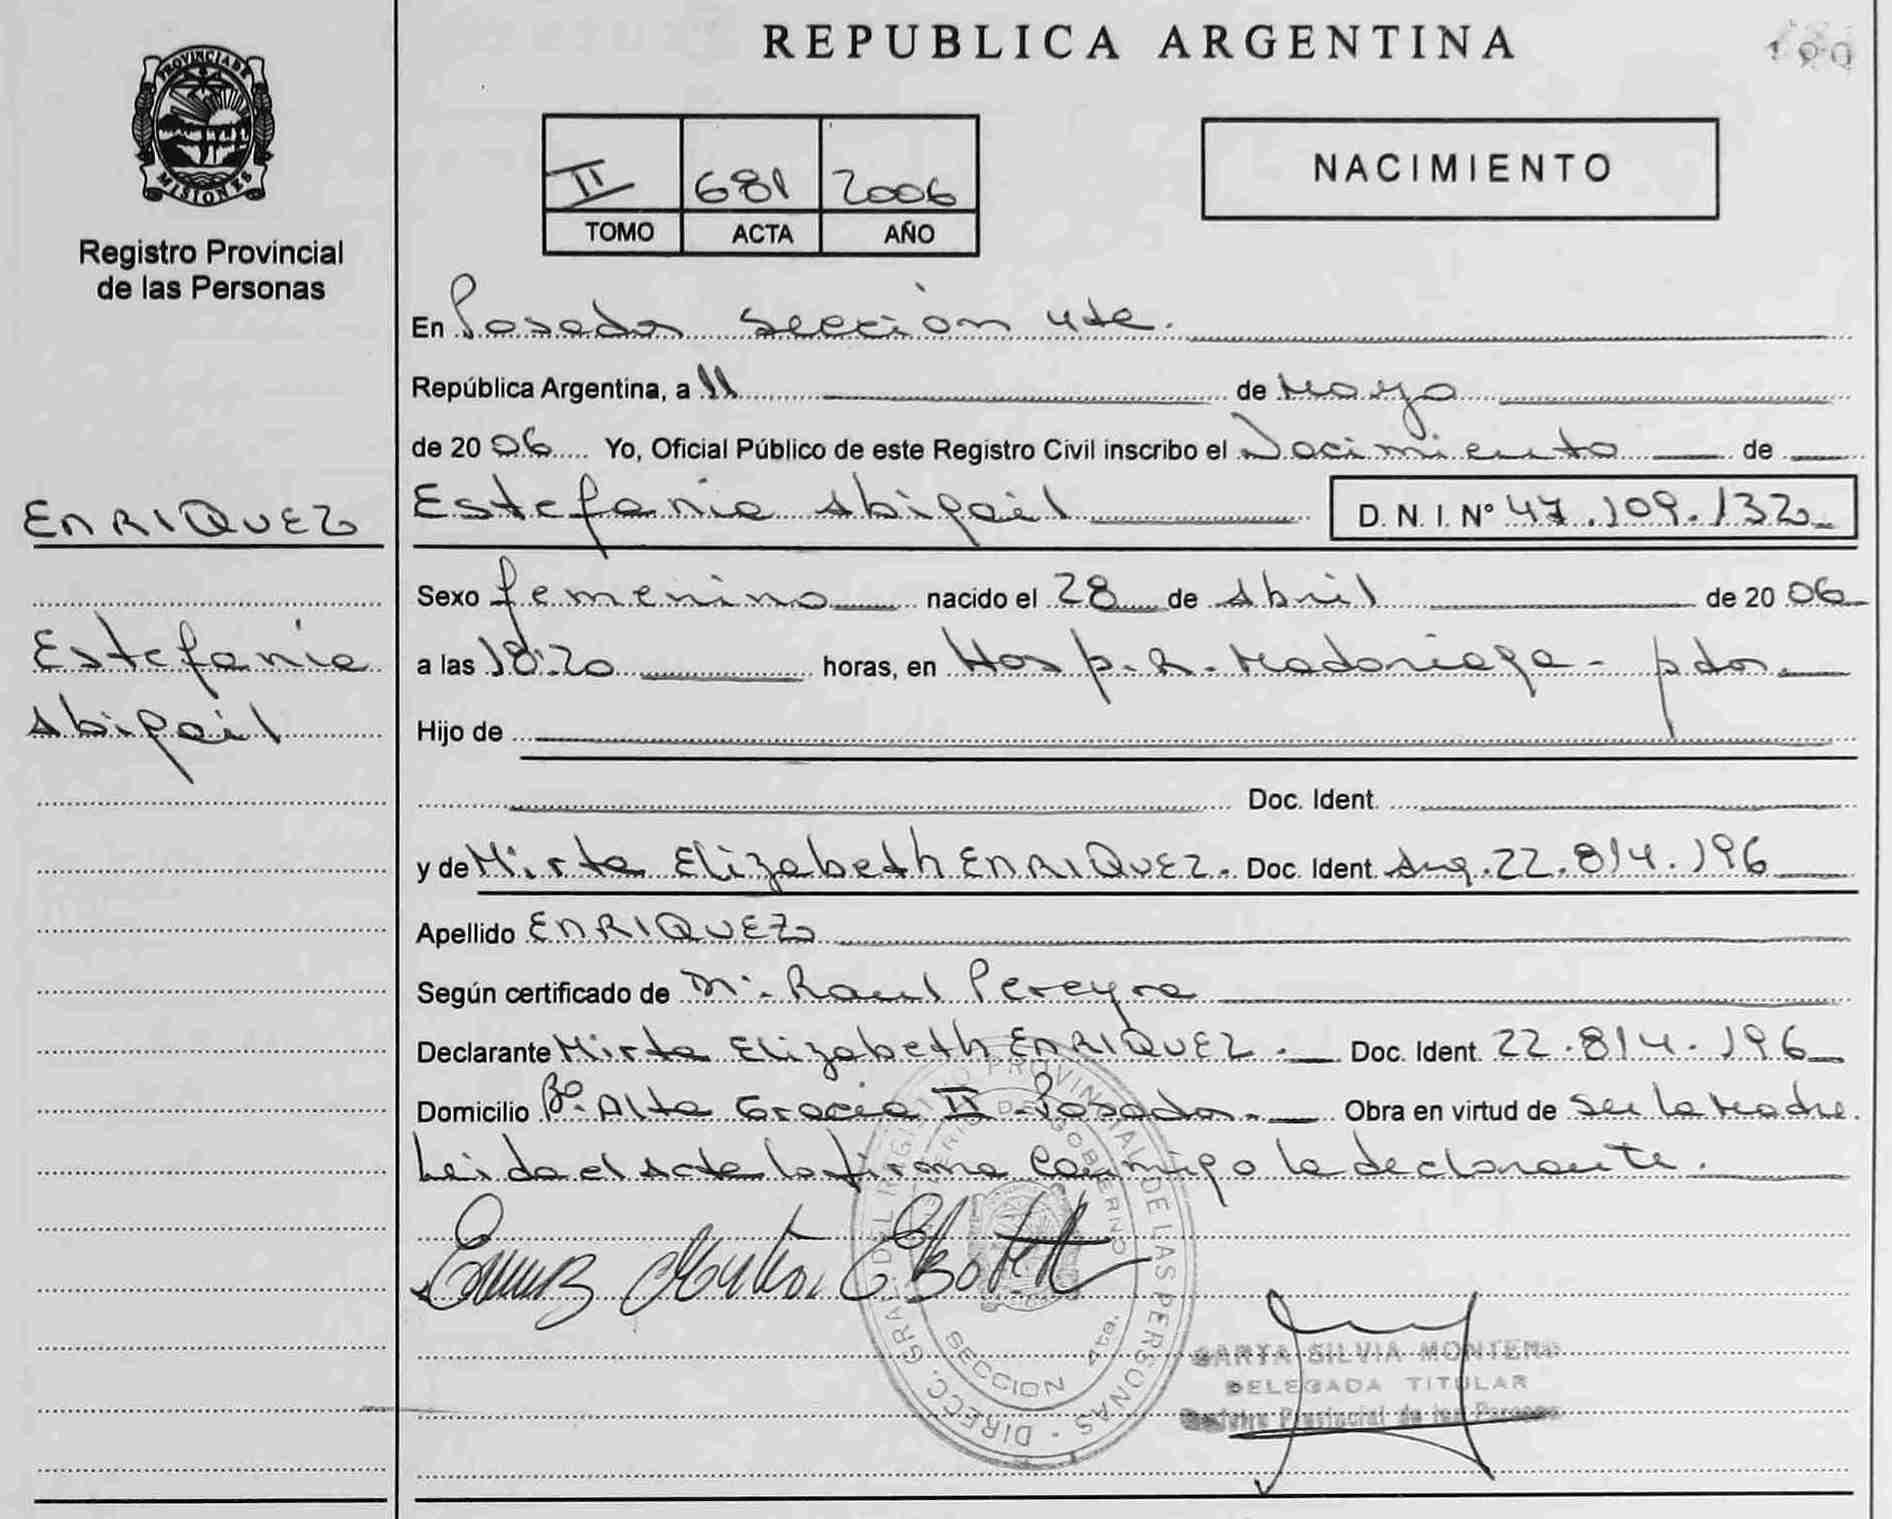 REPUBLICA ARGENTINA
PROVINCIA DE
MISIONES
Registro Provincial
de las Personas
II 681 2006
TOMO ACTA AÑO
NACIMIENTO
En Posadas sección 4ta.
República Argentina, a 11 de Mayo
de 2006 Yo, Oficial Público de este Registro Civil inscribo el Nacimiento de
ENRIQUEZ
Estefanía Abigail D.N.I. Nº 47.109.132
Sexo femenino nacido el 28 de Abril de 2006
Estefania
a las 18:20 horas, en Hosp. R. Madariaga - pdas.
Abigail
Hijo de
Doc. Ident.
y de Mirta Elizabeth ENRIQUEZ. Doc. Ident. Arg. 22.814.196
Apellido ENRIQUEZ
Según certificado de Raul Pereyra
Declarante Mirta Elizabeth ENRIQUEZ. Doc. Ident. 22.814.196
Domicilio Bº. Alta Gracia II - Posadas. Obra en virtud de ser la Madre.
Leida el Acta la firma conmigo la declarante.
DIRECC. GRAL. DEL REGISTRO PROVINCIAL DE LAS PERSONAS
MINISTERIO DE GOBIERNO
SECCION 4ta.
SILVIA MONTERO
DELEGADA TITULAR
Registro Provincial de las Personas